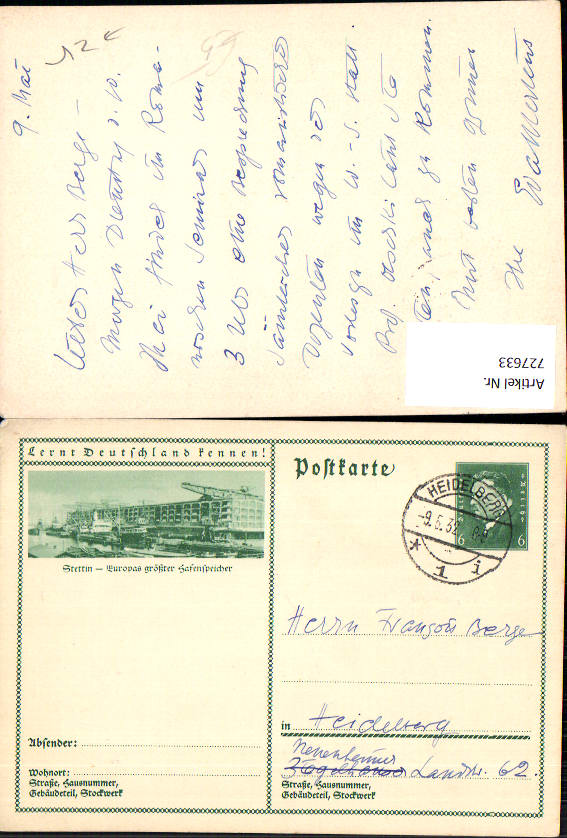 9. Mai
Lieber Herr Berge –
Morgen Dienstag d. 10.
Mai findet im Roma-
nischen Seminar um
3 Uhr eine Besprechung
sämtlicher romanistischer
Dozenten wegen der
Vorlesgn im W.-S. statt.
Prof. Olschki läßt Sie
zu kommen.
Mit besten Grüßen
Ihr
Artikel Nr.
727633
Lernt Deutschland kennen!
Stettin — Europas größter Hafenspeicher
Postkarte
HEIDELBERG
-9.5.32. 8-9
* 1 i
6 6
Herrn François Berge
in Heidelberg
Neuenheimer
Landstr. 62.
Absender:
Wohnort:
Straße, Hausnummer,
Gebäudeteil, Stockwerk
Straße, Hausnummer,
Gebäudeteil, Stockwerk